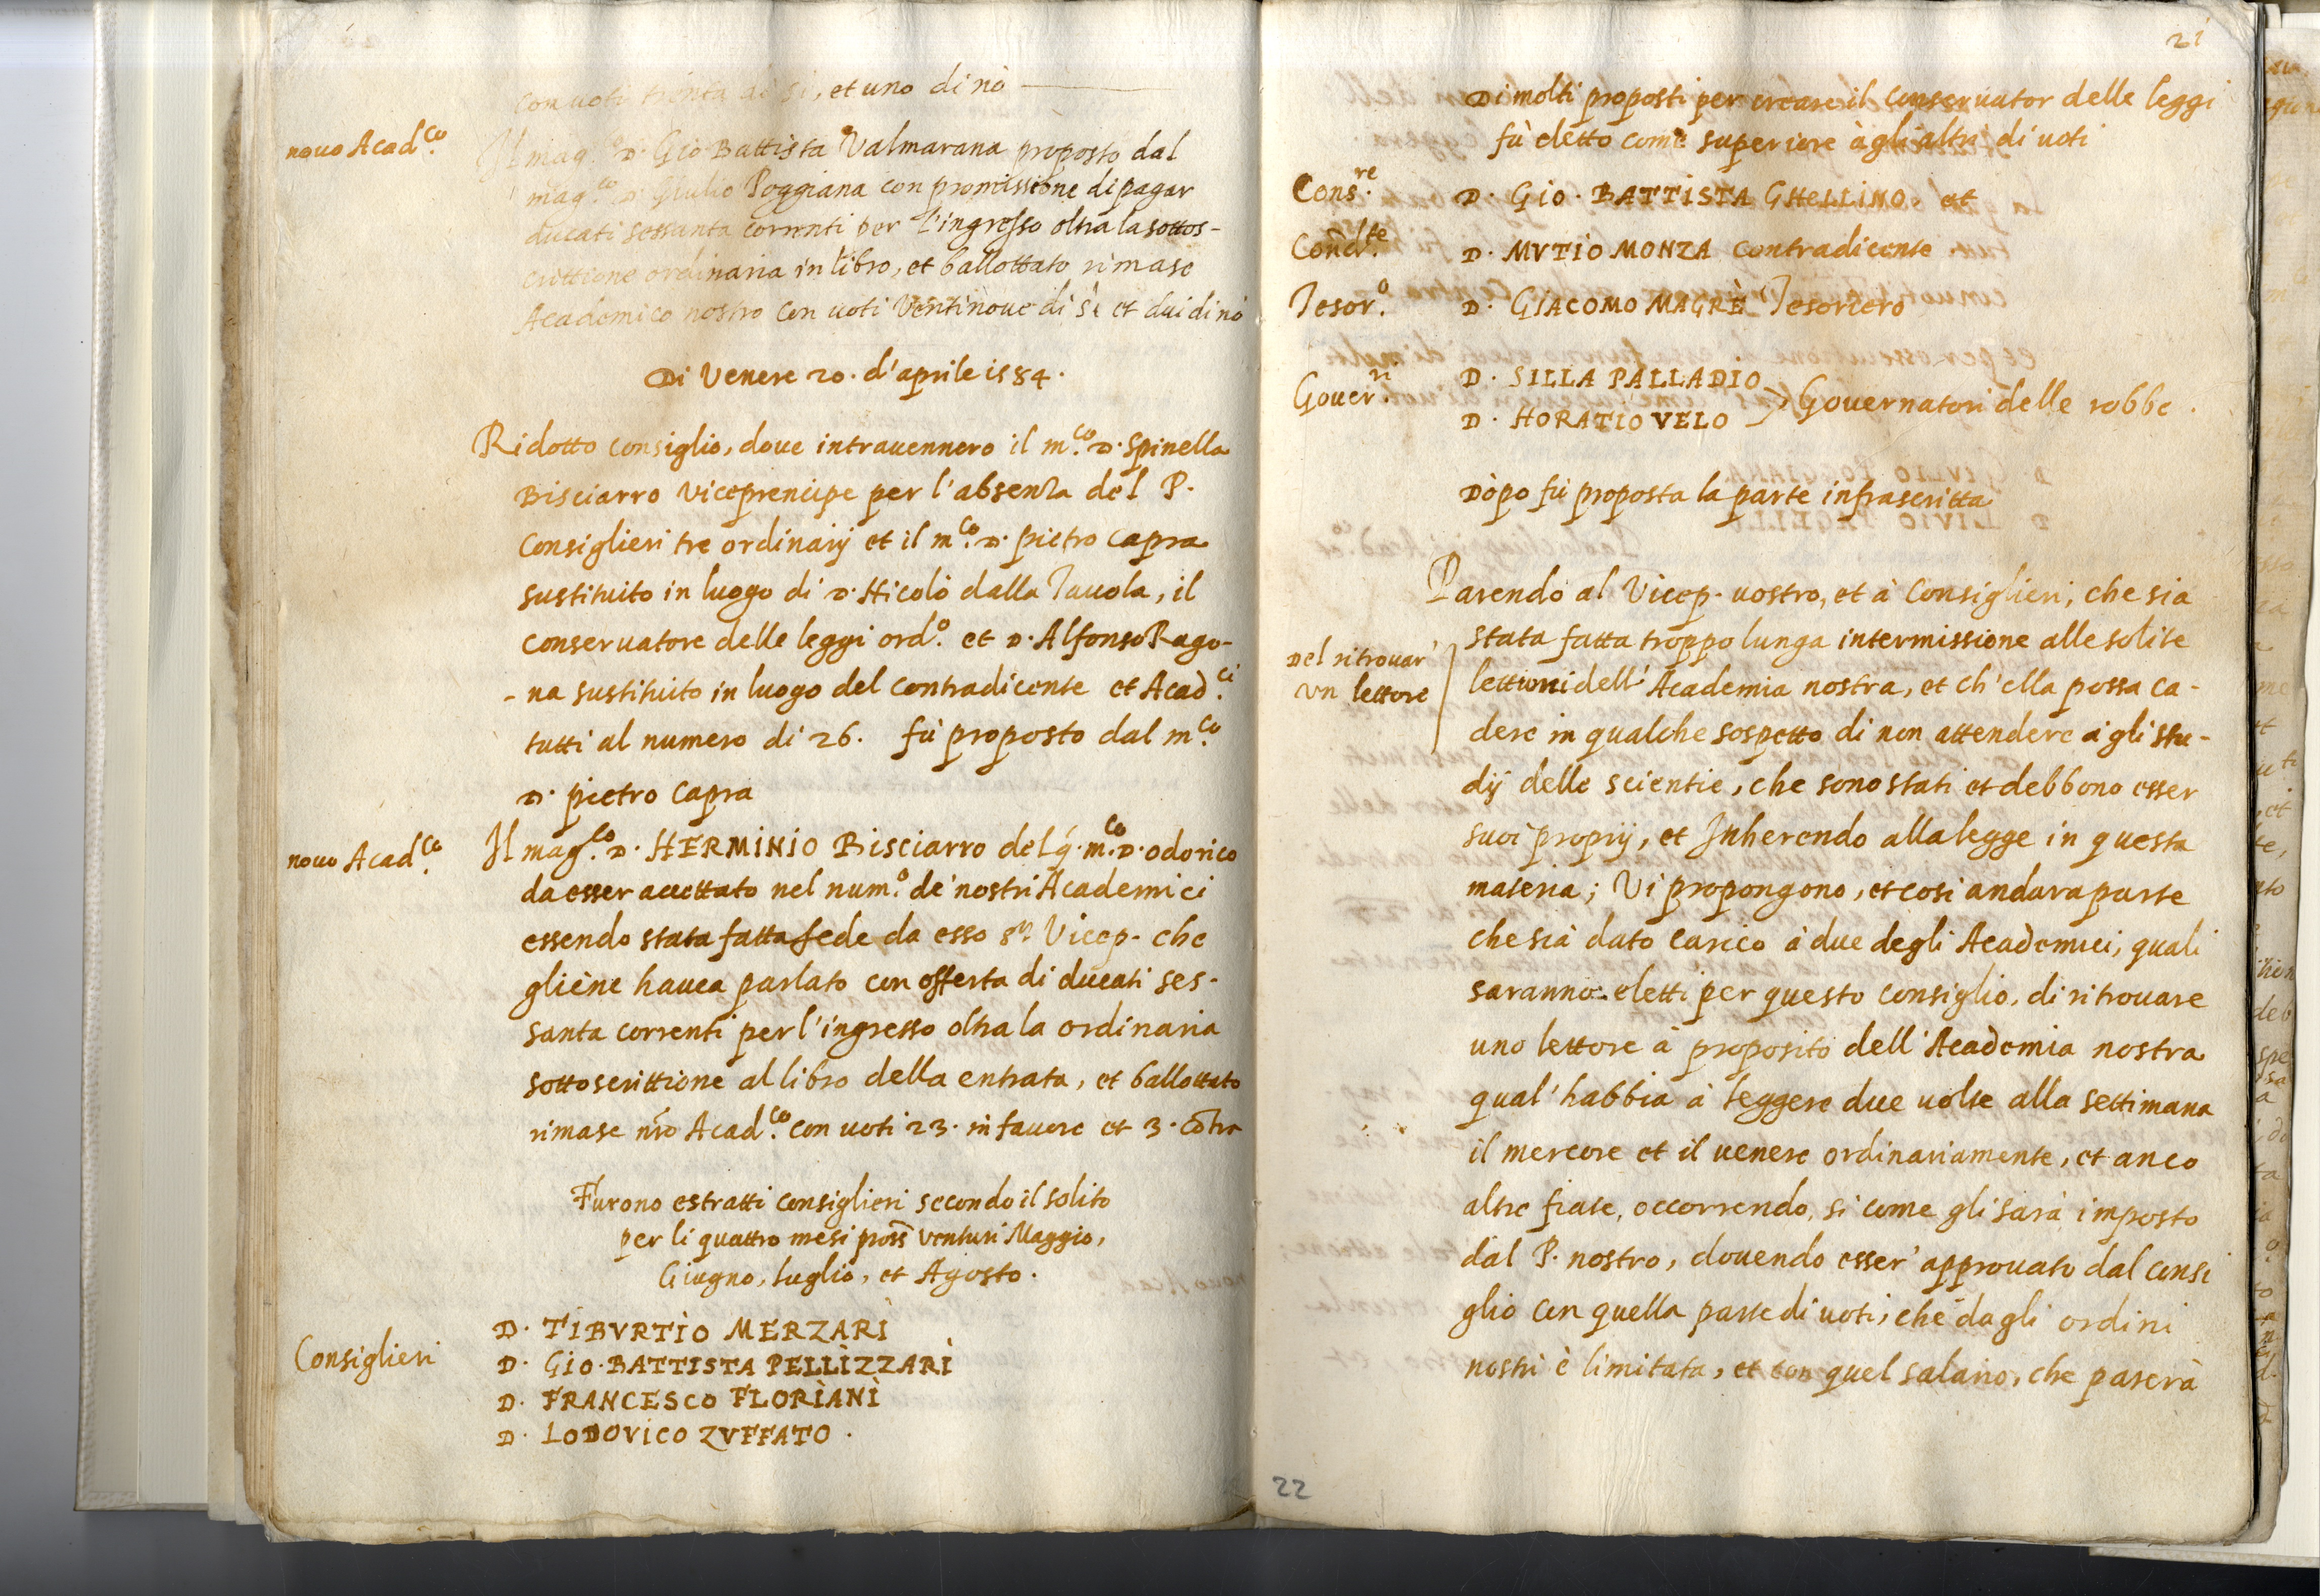 con voti trenta di si, et uno di nò
novo Acad.co
Il mag.co D. Gio Battista Valmarana proposto dal
mag.co D. Giulio Poggiana con promissione di pagar
ducati sessanta correnti per l'ingresso oltra la sottos-
crittione ordinaria in libro, et ballottato rimase
Academico nostro con voti ventinove di sì et dui di nò
Di Venere 20. d'aprile 1584.
Ridotto consiglio, dove intravennero il m.co D. Spinella
Bisciarro viceprencipe per l'absenza del P.
Consiglieri tre ordinarij et il m.co D. pietro capra
sustituito in luogo di D. Nicolò dalla Tavola, il
conservatore delle leggi ord.o et D. Alfonso Rago-
-na sustituito in luogo del contradicente et Acad.ci
tutti al numero di 26. fù proposto dal m.co
D. pietro Capra
novo Acad.co
Il mag.co D. HERMINIO Bisciarro del q. m.co D. odorico
da esser accettato nel num.o de' nostri Academici
essendo stata fatta fede da esso sr. Vicep. che
gliène havea parlato con offerta di ducati ses-
santa correnti per l'ingresso oltra la ordinaria
sottoscrittione al libro della entrata, et ballottato
rimase nro Acad.co con voti 23. in favore et 3. cõtra
Furono estratti consiglieri secondo il solito
per li quattro mesi pross venturi Maggio,
Giugno, luglio, et Agosto.
Consiglieri
D. TIBVRTIO MERZARI
D. GIO. BATTISTA PELLIZZARI
D. FRANCESCO FLORIANI
D. LODOVICO ZVFFATO.
21
Di molti proposti per creare il conservator delle leggi
fù eletto come superiore à gli altri di voti
Cons.re
D. GIO. BATTISTA GHELLINO et
Cond.te
D. MVTIO MONZA contradicente
Tesor.o
D. GIACOMO MAGRÈ Tesoriero
Gover.ri
D. SILLA PALLADIO
D. HORATIO VELO
Governatori delle robbe.
Dòpo fù proposta la parte infrascritta
Parendo al Vicep. vostro, et à Consiglieri, che sia
stata fatta troppo lunga intermissione alle solite
Del ritrovar
vn lettore
lettioni dell' Academia nostra, et ch'ella possa ca-
dere in qualche sospetto di non attendere à gli stu-
dij delle scientie, che sono stati et debbono esser
suoi proprij, et Inherendo alla legge in questa
materia; Vi propongono, et così andara parte
che sià dato carico à due degli Academici, quali
saranno eletti per questo consiglio, di ritrovare
uno lettore à proposito dell' Academia nostra
qual' habbia à leggere due volte alla settimana
il mercore et il venere ordinariamente, et anco
altre fiate, occorrendo, si come gli sarà imposto
dal P. nostro, dovendo esser' approvato dal consi
glio con quella parte di voti, che dagli ordini
nostri è limitata, et con quel salario, che parerà
22